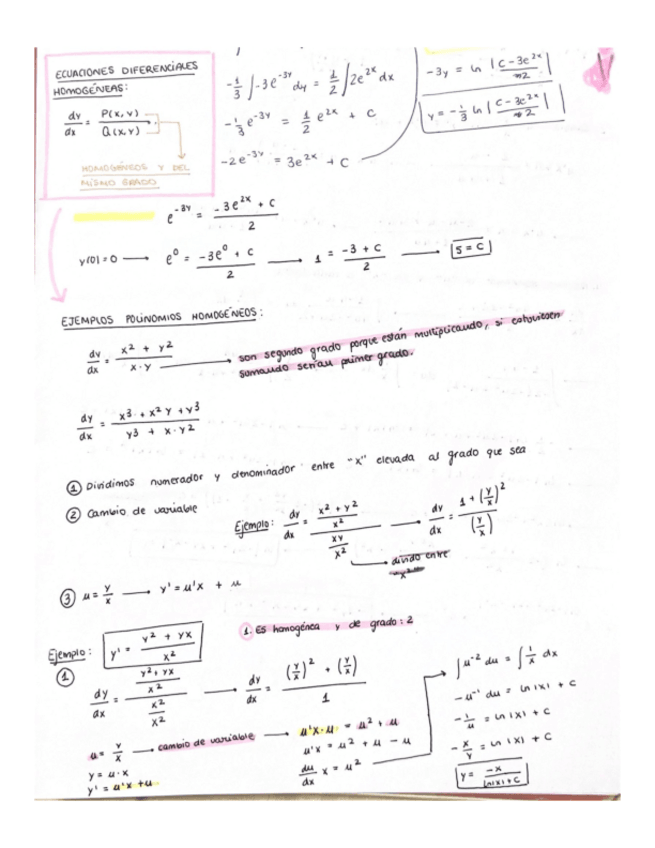 ECUACIONES DIFERENCIALES
HOMOGÉNEAS:
dy/dx = P(x,y) / Q(x,y)
HOMOGÉNEOS Y DEL
MISMO GRADO
-1/3 ∫-3e^-3y dy = 1/2 ∫2e^2x dx
-1/3 e^-3y = 1/2 e^2x + C
-2e^-3y = 3e^2x + C
-3y = ln |C-3e^2x / 2|
y = -1/3 ln |C-3e^2x / 2|
e^-3y = -3e^2x + C / 2
y(0)=0 → e^0 = -3e^0 + C / 2 → 1 = -3 + C / 2 → 5 = C
EJEMPLOS POLINOMIOS HOMOGÉNEOS:
dy/dx = x^2 + y^2 / x·y → son segundo grado porque están multiplicando, si estuviesen
sumando serían primer grado.
dy/dx = x^3 + x^2 y + y^3 / y^3 + x·y^2
① Dividimos numerador y denominador entre "x" elevada al grado que sea
② Cambio de variable
Ejemplo: dy/dx = (x^2 + y^2 / x^2) / (xy / x^2) → dy/dx = 1 + (y/x)^2 / (y/x)
divido entre
"x^2"
③ u = y/x → y' = u'x + u
Ejemplo: y' = y^2 + yx / x^2
1. Es homogénea y de grado: 2
① dy/dx = (y^2 + yx / x^2) / (x^2 / x^2) → dy/dx = (y/x)^2 + (y/x) / 1
u = y/x → cambio de variable → u'x·u = u^2 + u
y = u·x
y' = u'x + u
u'x = u^2 + u - u
du/dx x = u^2
∫u^-2 du = ∫1/x dx
-u^-1 du = ln|x| + C
-1/u = ln|x| + C
-x/y = ln|x| + C
y = -x / ln|x| + C